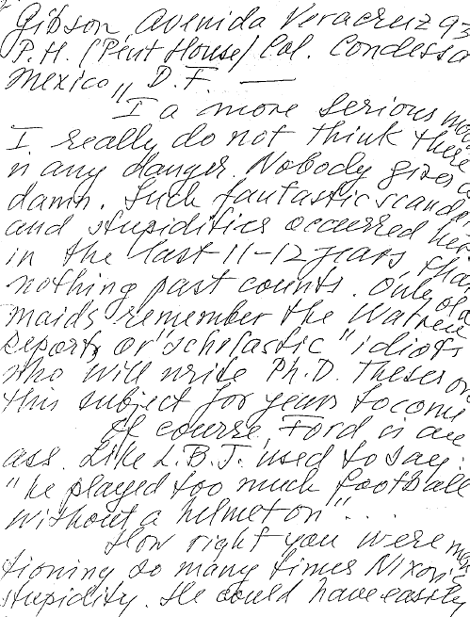 Gibson, Avenida Veracruz 93
P.H. (Pent House) Col. Condessa
Mexico 11, D.F. —
I a more serious
I really do not think there
n any danger. Nobody gives a
damn. Such fantastic scand
and stupidities occurred her
in the last 11-12 years, that
nothing past counts. Only old
maids remember the Warren
Reports or "scholastic" idiots
who will write Ph.D. Theses on
this subject for years to come
Of course, Ford is an
ass. Like L.B.J. used to say:
"he played too much football
without a helmet on"...
How right you were men
tioning so many times Nixon's
stupidity. He could have easily